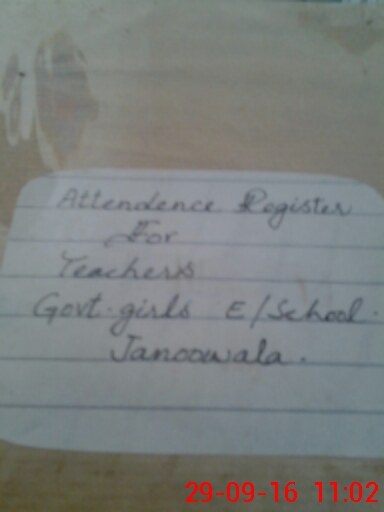 Attendence Register
For
Teachers
Govt. girls E/School.
Janoowala.
29-09-16 11:02